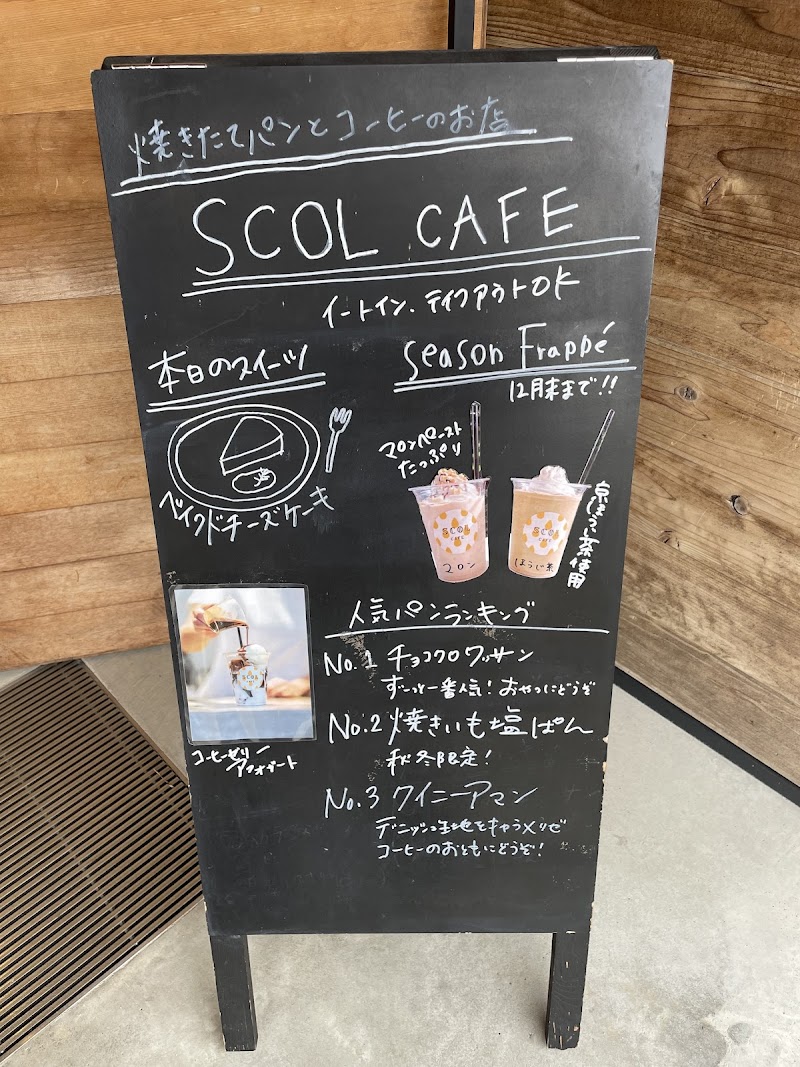 焼きたてパンとコーヒーのお店
SCOL CAFE
イートイン.テイクアウトOK
本日のスイーツ
ベイクドチーズケーキ
Season Frappé
12月末まで!!
マロンペースト
たっぷり
SCOL
CAFE
マロン
SCOL
CAFE
ほうじ茶
京ほうじ茶使用
SCOL
コーヒーゼリー
アフォガート
人気パンランキング
No.1 チョコクロワッサン
ずーっと一番人気!おやつにどうぞ
No.2 焼きいも塩ぱん
秋冬限定!
No.3 クイニーアマン
デニッシュ生地をキャラメリゼ
コーヒーのおともにどうぞ!